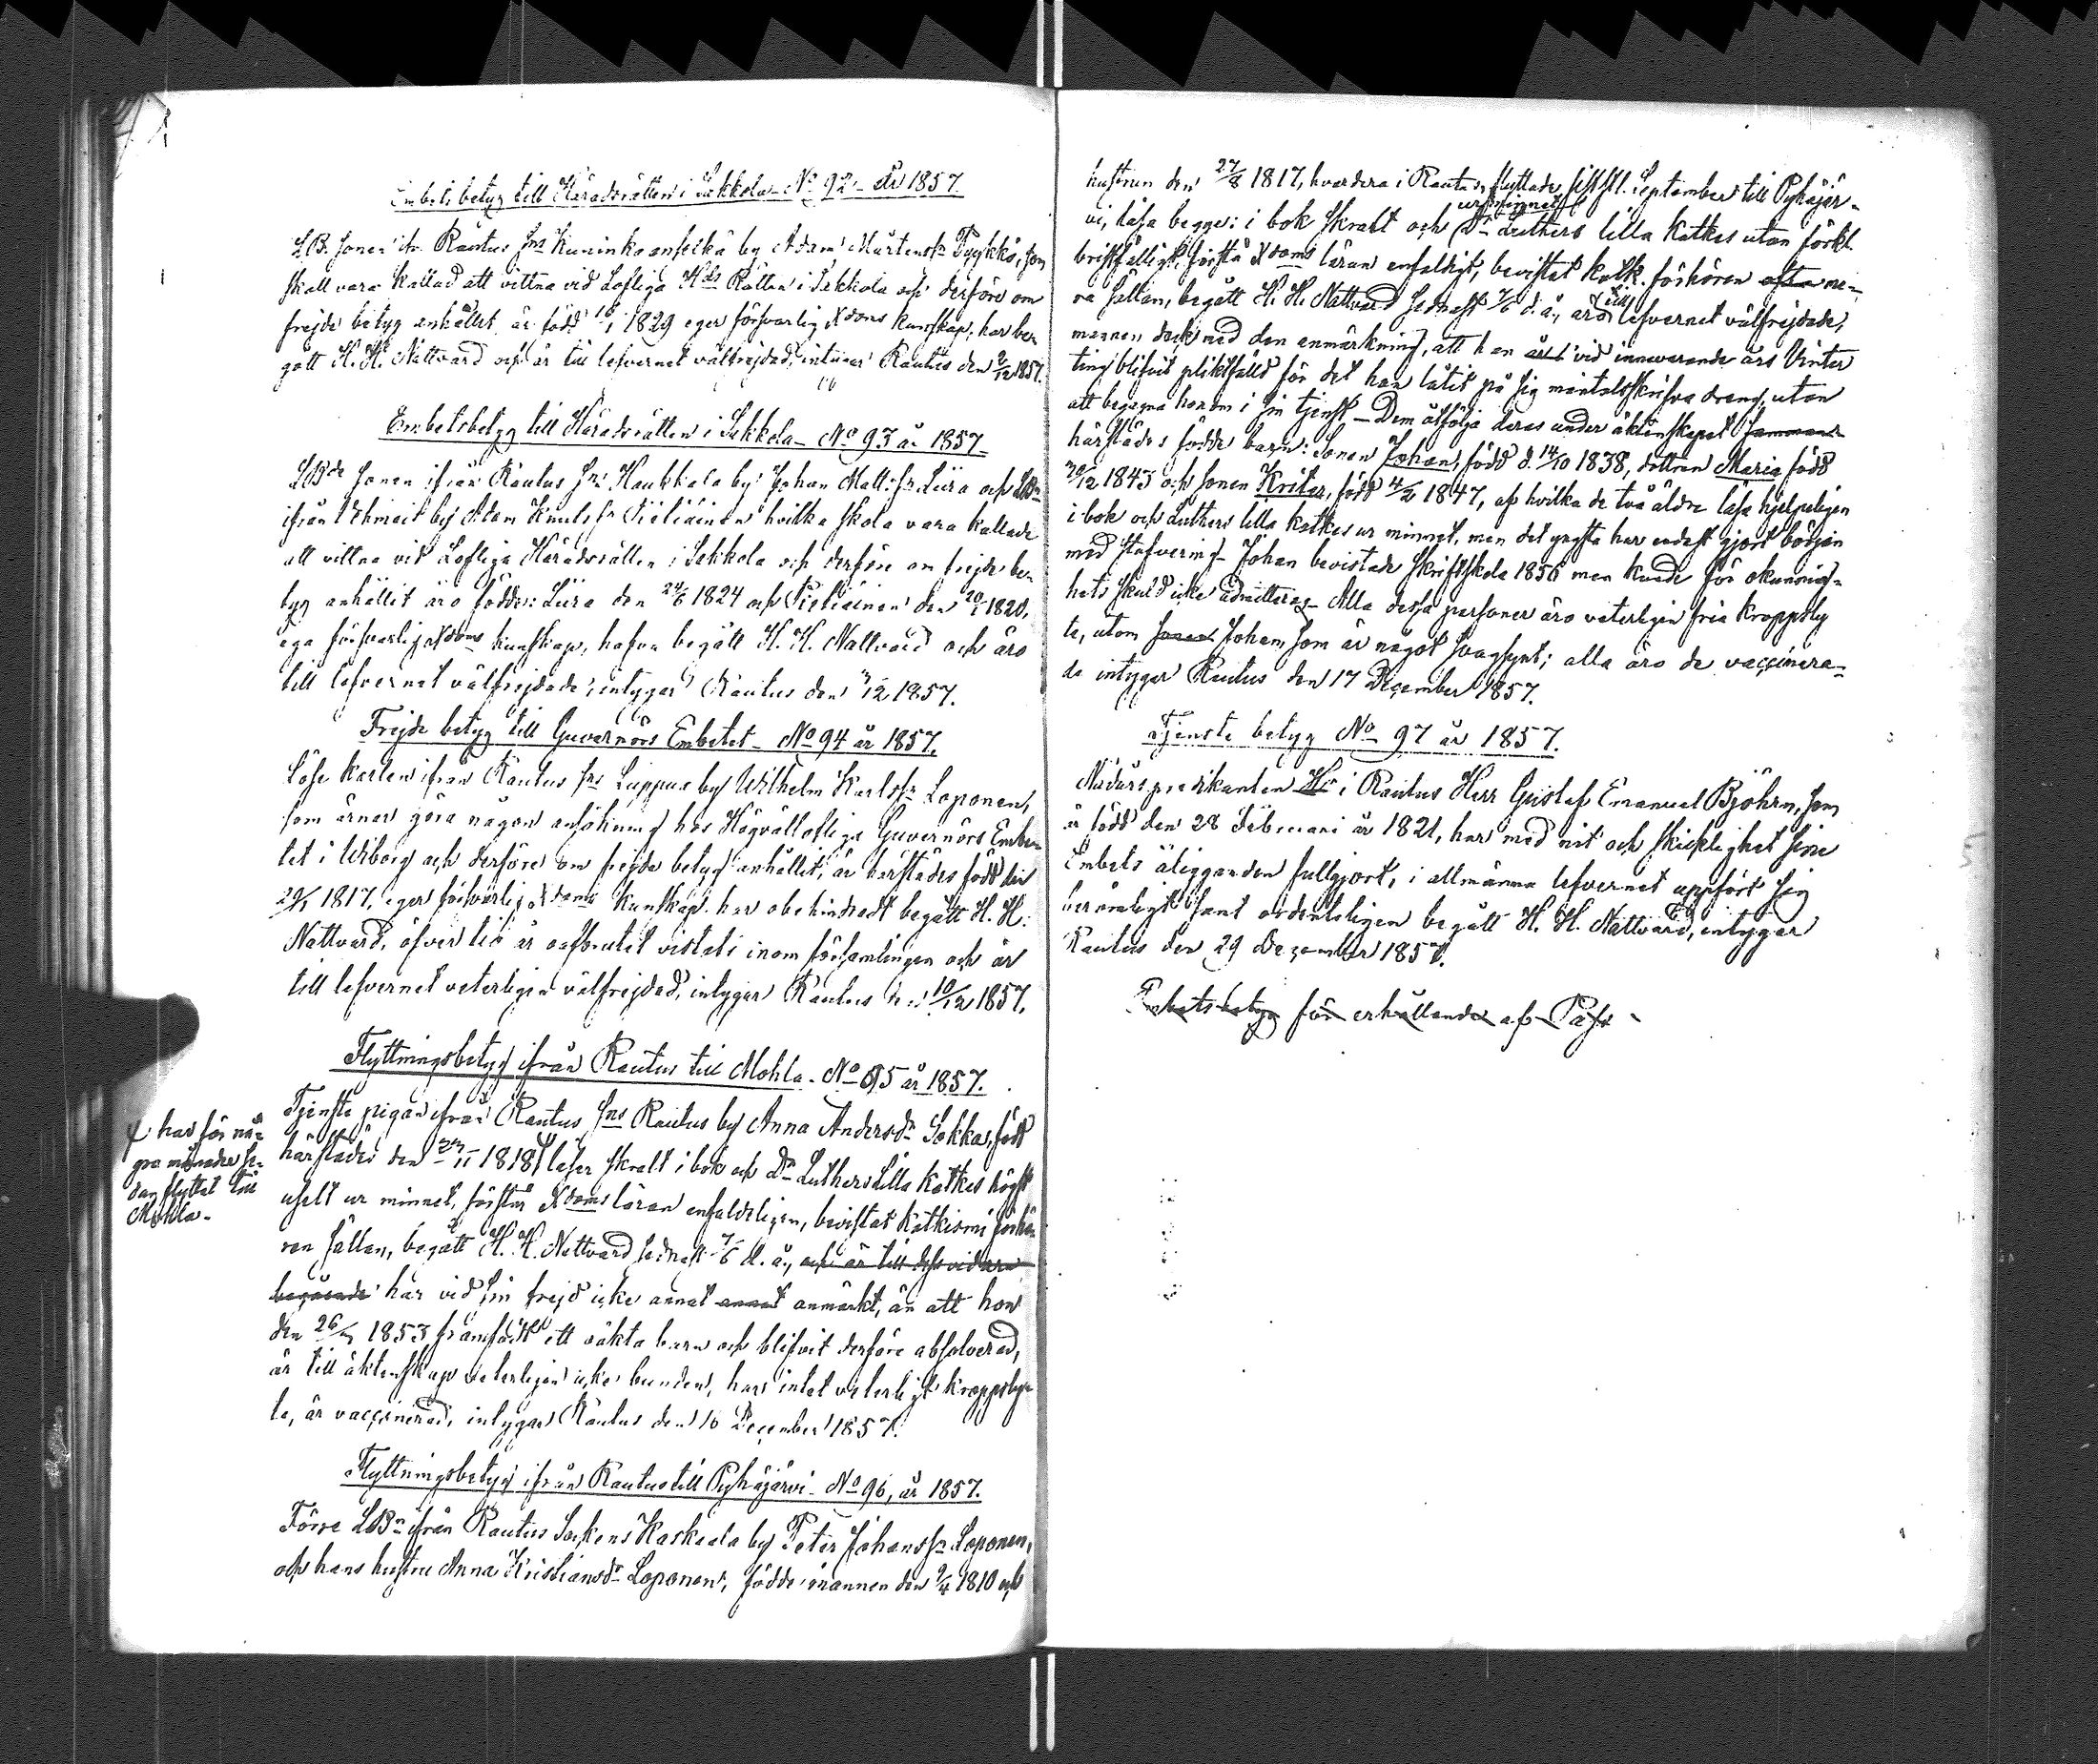 Embets betyg till Häradsrätten i Sakkola No 92 år 1857.
LB. Sonen ifr. Rautus Sns Kuninkaanselkä by Adam Mårtensn Pyykkö, som
skall vara kallad att vittna vid Lofliga Hds Rätten i Sakkola och derföre om
frejde betyg anhållit är född 16/1 1829 eger försvarlig Xdoms kunskap, har be-
gått H. H. Nattvard och är till lefvernet välfrejdad, intygar Rautus den 2/12 1857.
Embetsbetyg till Häradsrätten i Sakkola No 93 år 1857
LBde Sonen ifrån Rautus Sns Haukkala by Johan Matt:sn Liira och LBn
ifrån by Adam Knutssn Tieliäinen hvilka skola vara kallade
att vittna vid Lofliga Häradsrätten i Sakkola och derföre om frejde be-
tyg anhållit äro födde: Liira den 24/6 1824 och Tieliäinen den 20/1 1820,
ega försvarlig Xdoms kunskap, hafva begått H. H. Nattvard och äro
till lefvernet välfrejdade, intygar Rautus den 12 1857.
Frejde betyg till Guvernörs Embetet No 94 år 1857.
Löse karlen ifrån Rautus Sns Leppua by Wilhelm Karlssn Loponen,
som ärnar göra någon ansökning hos Högvällofliga Guvernörs Embe-
tet i Wiborg och derföre om frejde betyg anhållit, är härstädes född den
29/1 1817, eger försvarlig Xdoms kunskap, har obehindradt begått H. H.
Nattvard, öfver tio år oafbrutet vistats inom församlingen och är
till lefvernet veterligen välfrejdad, intygar Rautus den 10/12 1857.
Flyttningsbetyg ifrån Rautus till Mohla. No 95 år 1857.
Tjenste pigan ifrån Rautus Sns Rautus by Anna Andersdr Sokka, född
härstädes den 24/11 1818 läser skralt i bok och Dr Luthers Lilla Katkes högst
uselt ur minnet, förstår Xdoms läran enfaldeligen, bevistat Katkismi förhö-
ren sällan, begått H. H. Nattvard sednast 7/6 d. å., och är till dess vidare
begående har vid sin frejd icke annat annat anmärkt, än att hon
den 26/ 1853 framfödt ett oäkta barn och blifvit derföre absolverad,
är till äktenskap veterligen icke bunden, har intet veterligt kroppsly-
te, är vaccinerad, intygar Rautus den 10 December 1857.
X har för nå-
gra månader se-
dan flyttat till
Mohla.
Flyttningsbetyg ifrån Rautus till Pyhäjärvi No 96, år 1857.
Förre LBn ifrån Rautus Sockens Kaskaala by Peter Johanssn Loponen,
och hans hustru Anna Kristiansdr Loponen, födde: mannen den 9/4 1810 och
hustrun den 27/8 1817, hvardera i Rautus, flyttade sistl. September till Pyhäjär-
vi, läsa begge: i bok skralt och ur minnet Dr Luthers lilla Katkes utan förkl.
bristfälligt, förstå Xdoms läran enfaldigt, bevistat katk. förhören ofta me-
ra sällan, begått H. H. Nattvard sednast 7/6 d. å., äro till lefvernet välfrejdade,
mannen dock med den anmärkning, att han vid innevarande års Vinter
ting blifvit pliktfälld för det han låtit på sig mantalsskrifva dreng, utan
att begagna honom i sin tjenst. Dem åtfölja deras under äktenskapet sammans
härstädes födde barn: Sonen Johan, född d. 14/10 1838, dottren Maria född
30/12 1843 och sonen Krister, född 4/2 1847, af hvilka de två äldre läsa hjelpeligen
i bok och Luthers lilla katkes ur minnet, men det yngsta har endast gjort början
med stafvering. Johan bevistade Skriftskola 1856 men kunde för okunnig-
hets skuld icke admitteras. Alla dessa personer äro veterligen fria kroppsly
te, utom sonen Johan, som är något svagsynt; alla äro de vaccinera-
de intygar Rautus den 17 December 1857.
Tjenste betyg No 97 år 1857.
Nådårs predikanten Hr i Rautus Herr Gustaf Emanuel Björhn, som
är född den 28 Februari år 1821, har med nit och skicklighet sine
Embets åligganden fullgjort, i allmänna lefvernet uppfört sig
berömligt samt ordenteligen begått H. H. Nattvard, intygar
Rautus den 29 December 1857.
Embetsbetyg för erhållande af Pass